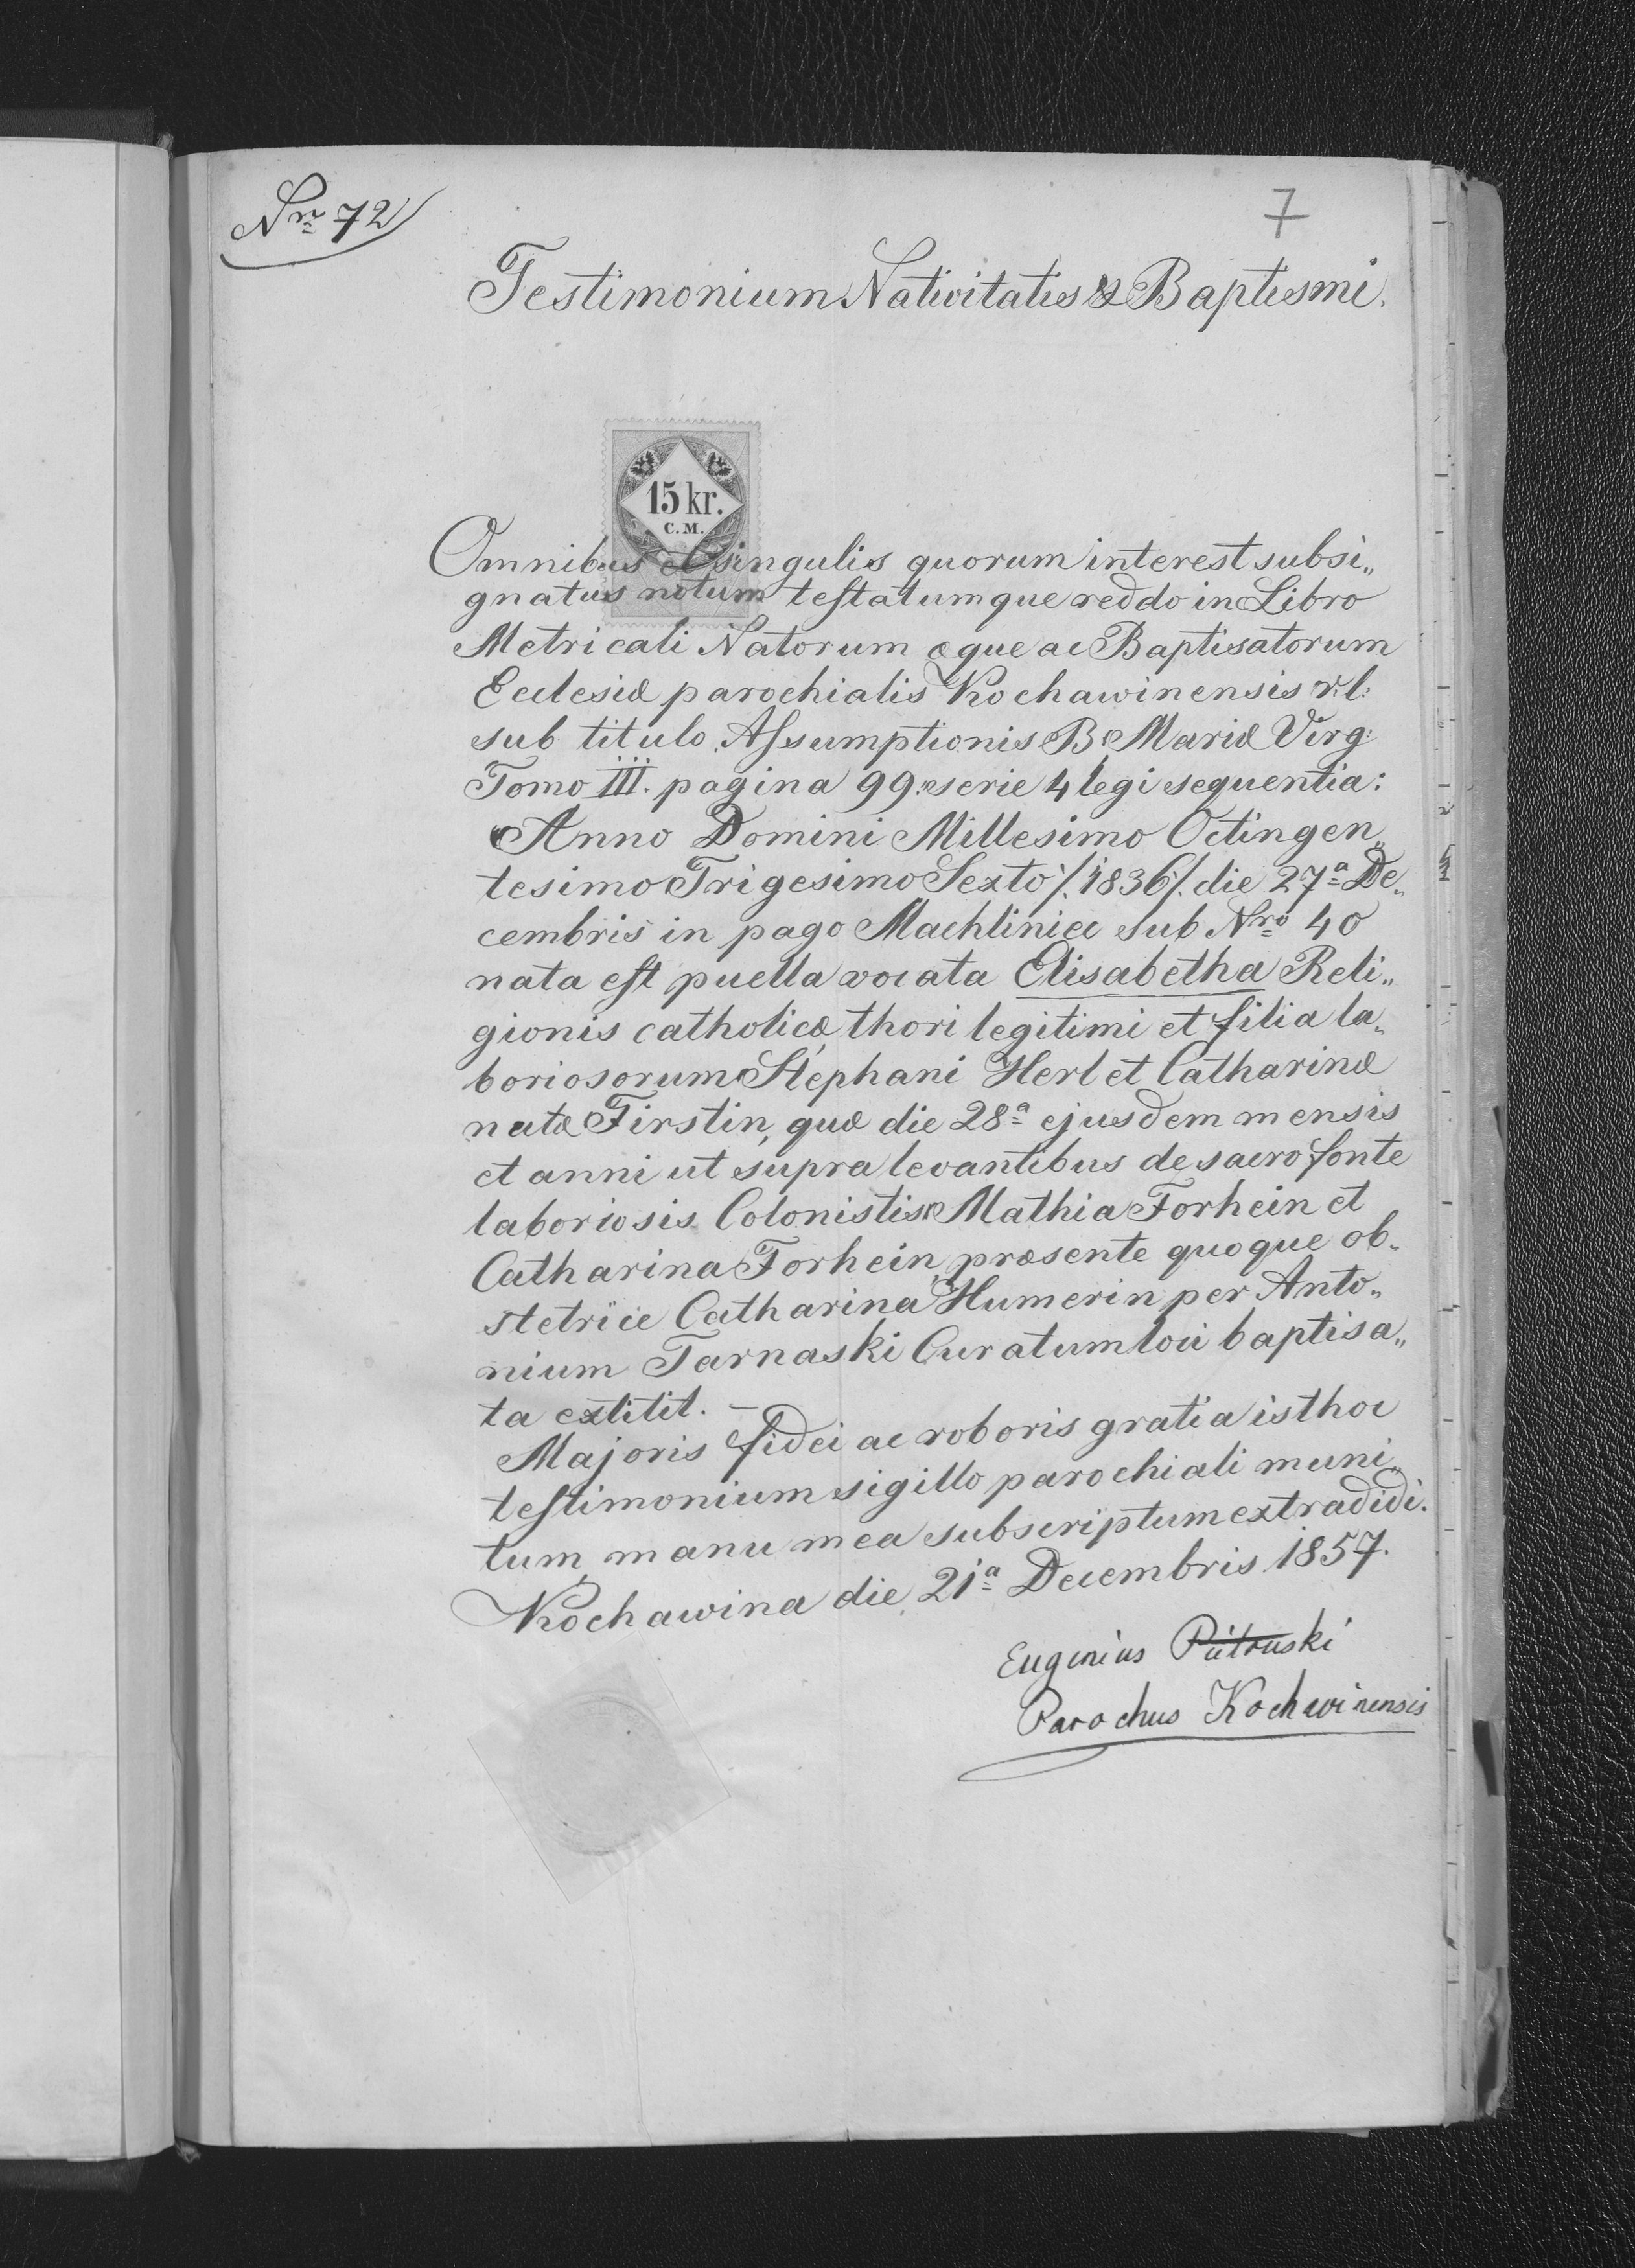 Nr 72
7
Testimonium Nativitatis & Baptismi.
15 kr.
C.M.
Omnibus et singulis quorum interest subsi„
gnatus notum testatumque reddo in Libro
Metricali Natorum æque ac Baptisatorum
Ecclesiæ parochialis Kochawinensis r: l:
sub titulo Assumptionis B. Mariæ Virg:
Tomo III. pagina 99. serie 4 legi sequentia:
Anno Domini Millesimo Octingen„
tesimo Trigesimo Sexto /: 1836 /: die 27ª De„
cembris in pago Machlinice sub Nro 40
nata est puella vocata Elisabetha Reli„
gionis catholicæ, thori legitimi et filia la„
boriosorum Stephani Herl et Catharinæ
natæ Firstin, quæ die 28ª ejusdem mensis
et anni ut supra levantibus de sacro fonte
laboriosis Colonistis Mathia Forhein et
Catharina Forhein, præsente quoque ob„
stetrice Catharina Humerin per Anto„
nium Tarnaski Curatum loci baptisa„
ta extitit. —
Majoris fidei ac roboris gratia isthoc
testimonium sigillo parochiali muni„
tum, manu mea subscriptum extradidi.
Kochawina die 21ª Decembris 1857.
Eugenius Pietruski
Parochus Kochwinensis